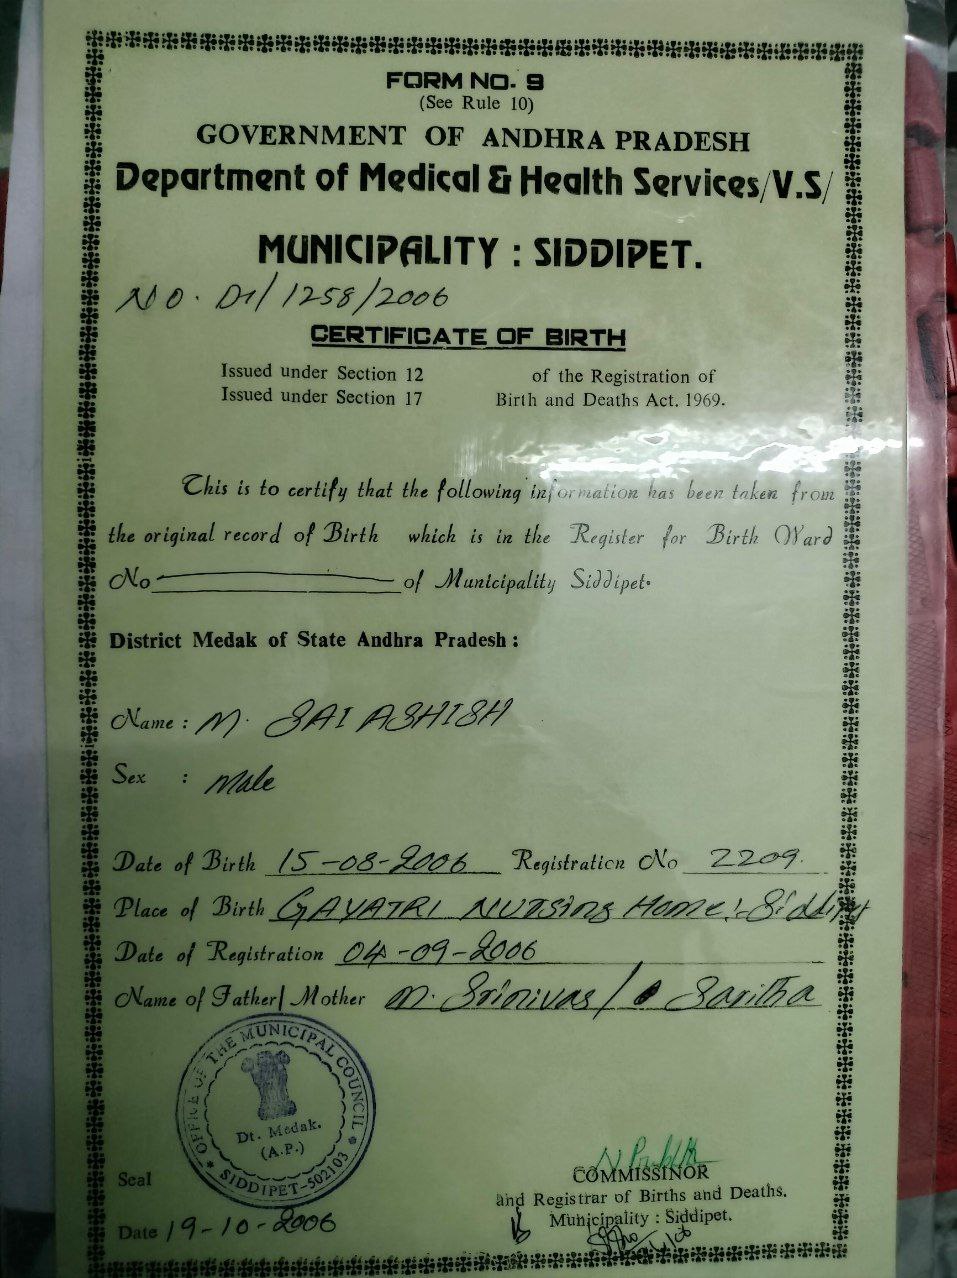 FORM NO. 9
(See Rule 10)
GOVERNMENT OF ANDHRA PRADESH
Department of Medical & Health Services/V.S/
MUNICIPALITY : SIDDIPET.
NO. D1/1258/2006
CERTIFICATE OF BIRTH
Issued under Section 12 of the Registration of
Issued under Section 17 Birth and Deaths Act. 1969.
This is to certify that the following information has been taken from
the original record of Birth which is in the Register for Birth Ward
No of Municipality Siddipet.
District Medak of State Andhra Pradesh :
Name : M. SAI ASHISH
Sex : Male
Date of Birth 15-08-2006 Registration No 2209.
Place of Birth GAYATRI Nursing Home:- Siddipet
Date of Registration 04-09-2006
Name of Father/ Mother M. Srinivas / Saritha
OFFICE OF THE MUNICIPAL COUNCIL
Dt. Medak.
(A.P.)
SIDDIPET-502103
Seal
COMMISSINOR
and Registrar of Births and Deaths.
Municipality : Siddipet.
Date 19-10-2006